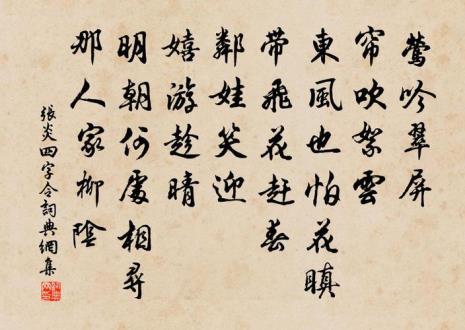 鶯吟翠屏
帘吹絮雲
東風也怕花瞋
帶飛花赶春
鄰娃笑迎
嬉游趁晴
明朝何處相尋
那人家柳陰
張炎四字令詞典網集